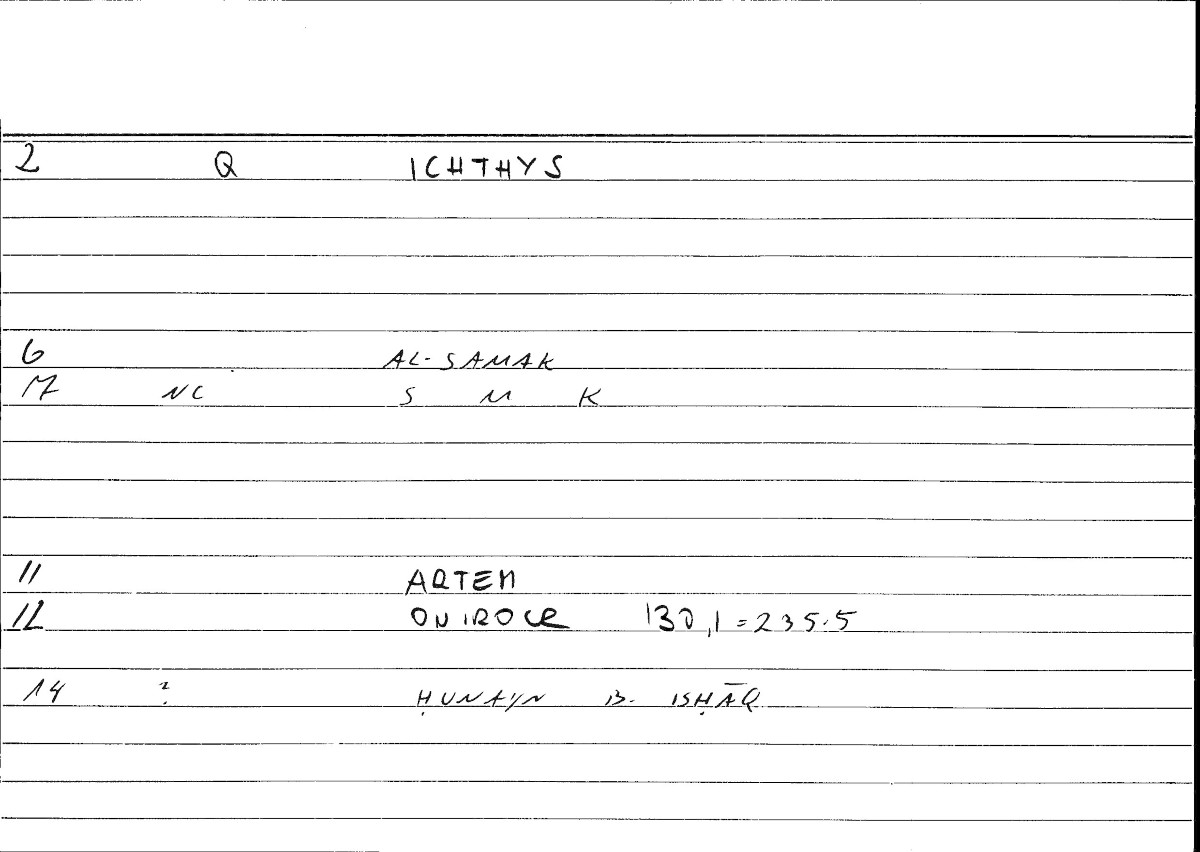 2 Q ICHTHYS
6 AL-SAMAK
7 NC S M K
11 ARTEM
12 ONIROCR 130,1 = 235.5
14 ? ḤUNAYN B. ISḤĀQ